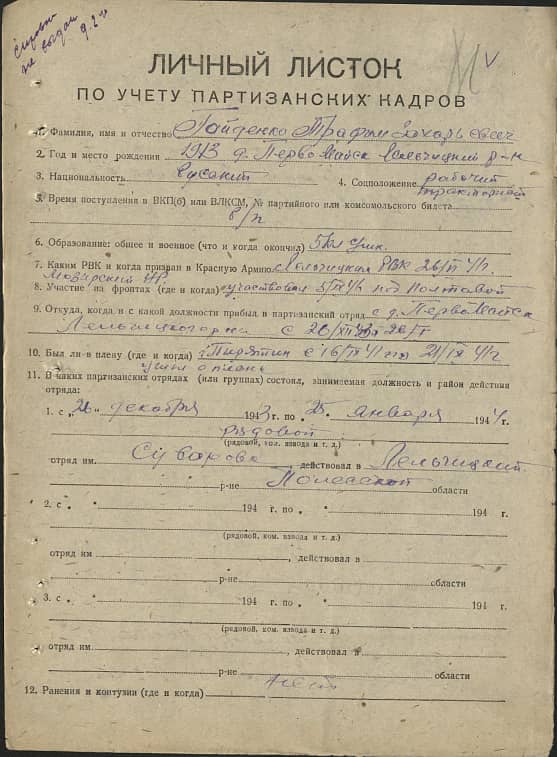 Справка
не выдан
ЛИЧНЫЙ ЛИСТОК
ПО УЧЕТУ ПАРТИЗАНСКИХ КАДРОВ
1. Фамилия, имя и отчество Гайденко Трафим Захарьевич
2. Год и место рождения 1913 д. Перво Майск Лельчицкий р-н
3. Национальность Русский 4. Соцположение рабочий
тракторист
5. Время поступления в ВКП(б) или ВЛКСМ, № партийного или комсомольского билета
б/п
6. Образование: общее и военное (что и когда окончил) 5 кл
7. Каким РВК и когда призван в Красную Армию Лельчицким РВК 26/VI 41г.
8. Участие на фронтах (где и когда) участвовал под Полтавой
9. Откуда, когда и с какой должности прибыл в партизанский отряд с д. Перво Майск
Лельчицкого р-на с 26/XII
10. Был ли в плену (где и когда) г. Пирятин с 16/IX 41 по 21/IX 41г
ушел с плена
11. В каких партизанских отрядах (или группах) состоял, занимаемая должность и район действия
отряда:
1. с „26" декабря 1943 г. по „25" января 1944 г.
рядовой
(рядовой, ком. взвода и т. д.)
отряд им. Суворова, действовал в Лельчицкий
р-не Полесской области
2. с „ " 194 г. по „ " 194 г.
(рядовой, ком. взвода и т. д.)
отряд им , действовал в
р-не области
3. с „ " 194 г. по „ " 194 г.
(рядовой, ком. взвода и т. д.)
отряд им. , действовал в
р-не области
12. Ранения и контузии (где и когда) нет